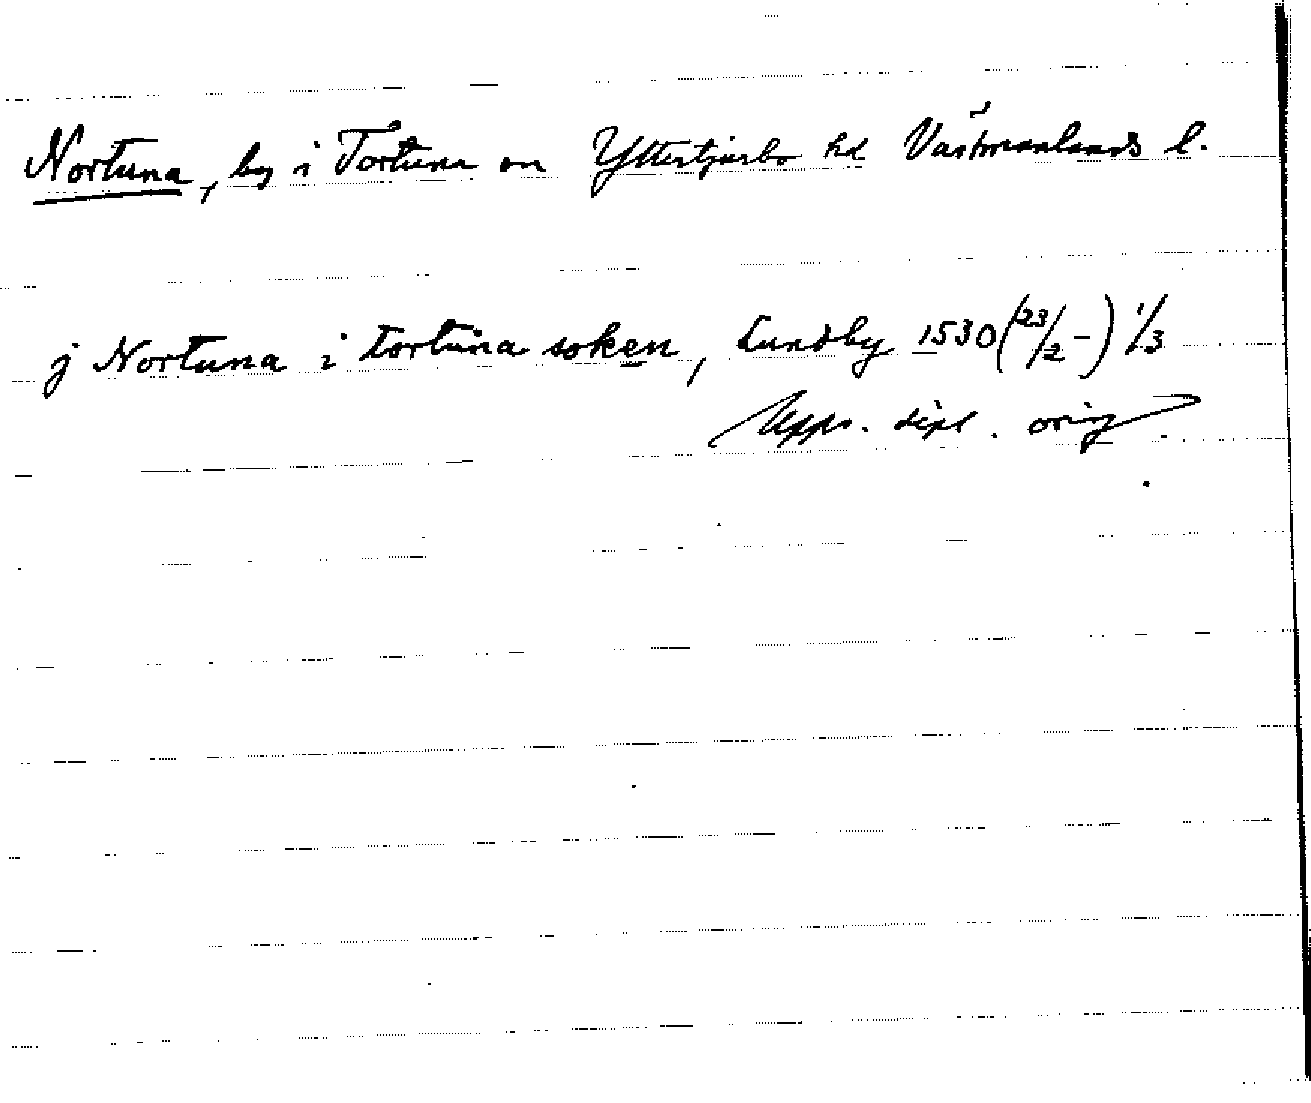 Nortuna, by i Tortuna sn Yttertjurbo hd Västmanlands l.
j Nortuna i tortuna soken, Lundby 1530 (23/2 –) 1/3
Upps. dipl. orig